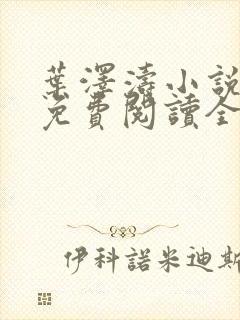 葉澤濤小說
免費閱讀全
伊科諾米迪斯